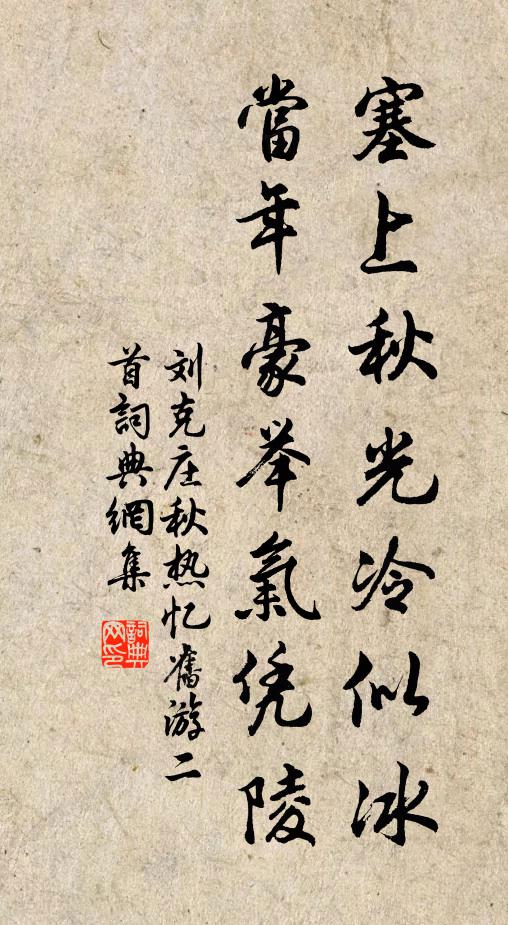 塞上秋光冷似冰
當年豪举氣凭陵
刘克庄秋热忆舊游二
首詞典網集
詞典网印